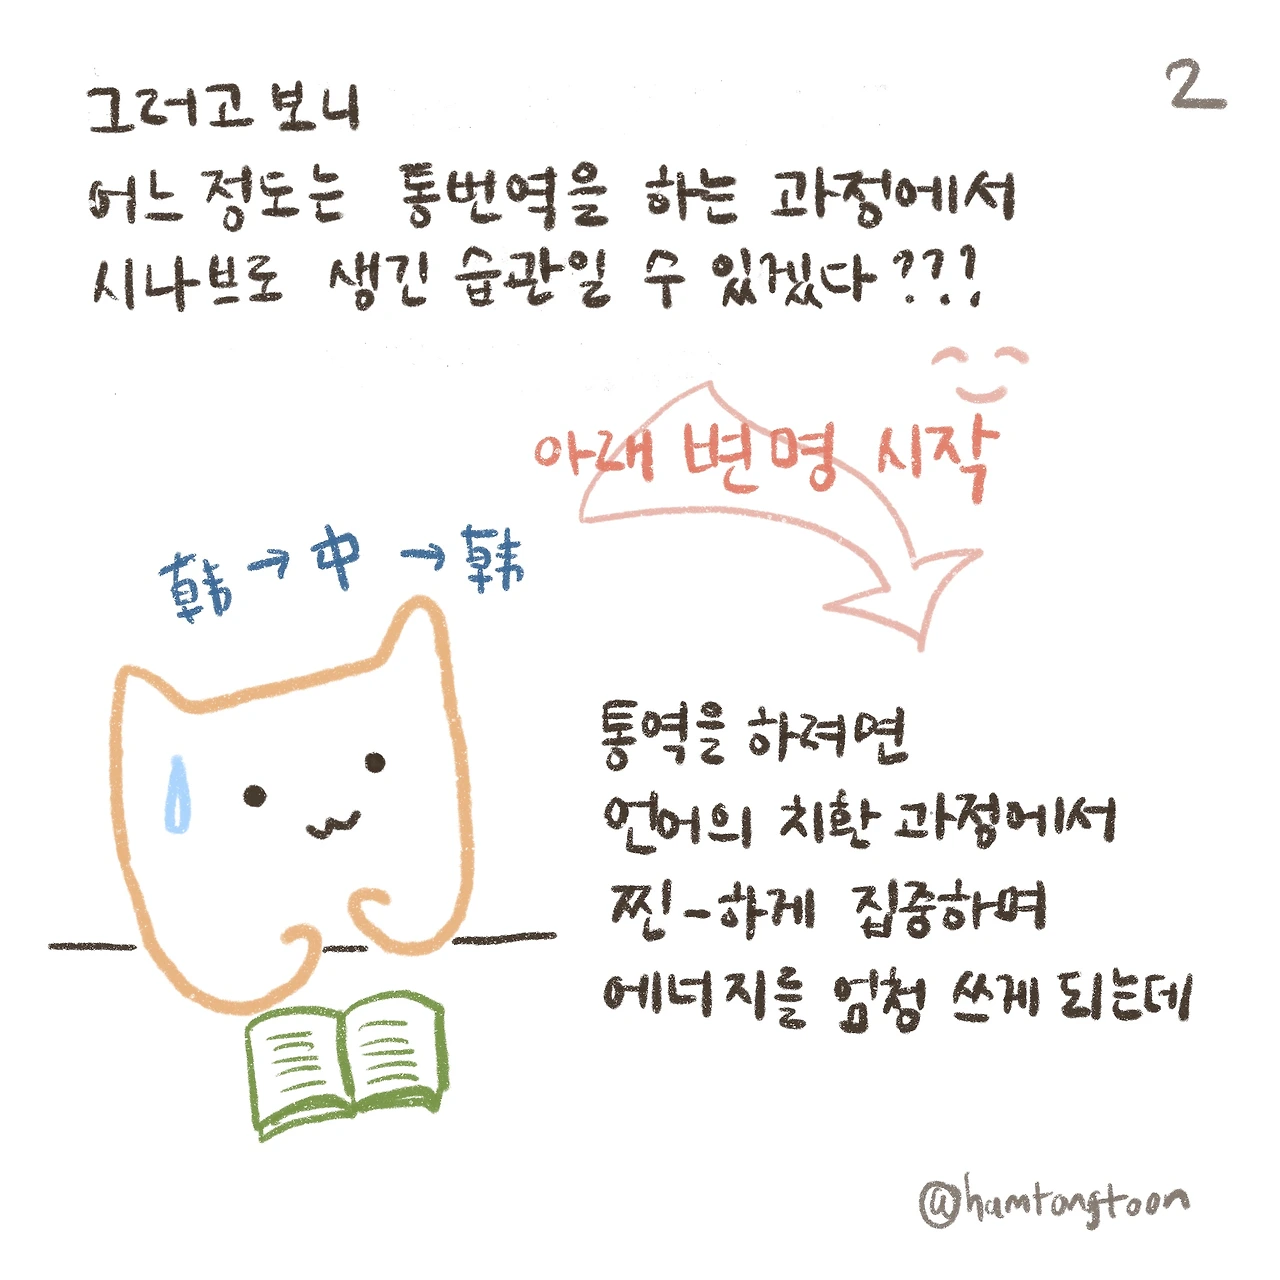 2
그러고 보니
어느 정도는 통번역을 하는 과정에서
시나브로 생긴 습관일 수 있겠다???
아래 변명 시작
韩→中→韩
통역을 하려면
언어의 치환 과정에서
찐-하게 집중하며
에너지를 엄청 쓰게 되는데
@hamtongtoon